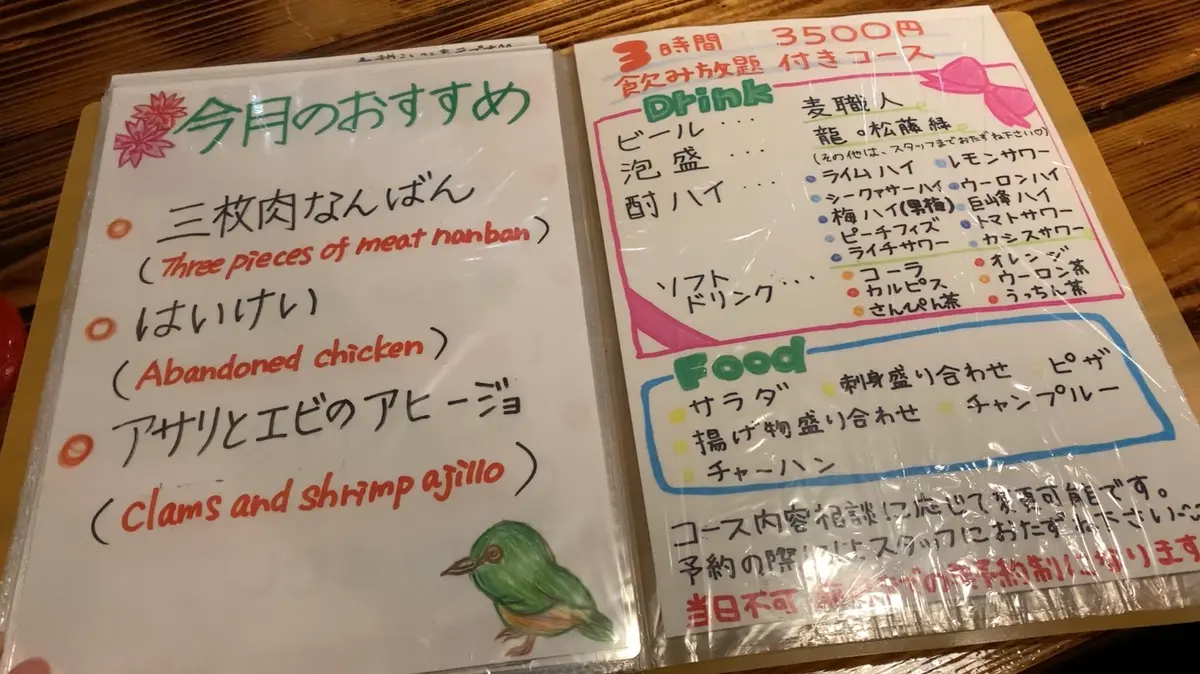 今月のおすすめ
三枚肉なんばん
(Three pieces of meat nanban)
はいけい
(Abandoned chicken)
アサリとエビのアヒージョ
(Clams and shrimp ajillo)
3時間 3500円
飲み放題 付きコース
Drink
ビール・・・ 麦職人
泡盛・・・ 龍。松藤緑
(その他は、スタッフまでおたずね下さい♡)
酎ハイ・・・ ライムハイ レモンサワー
シークァサーハイ ウーロンハイ
梅ハイ(男梅) 巨峰ハイ
ピーチフィズ トマトサワー
ライチサワー カシスサワー
ソフトドリンク・・ コーラ オレンジ
カルピス ウーロン茶
さんぴん茶 うっちん茶
Food
サラダ 刺身盛り合わせ ピザ
揚げ物盛り合わせ チャンプルー
チャーハン
コース内容相談に応じて変更可能です。
予約の際にはスタッフにおたずね下さい
当日不可 予約制になります